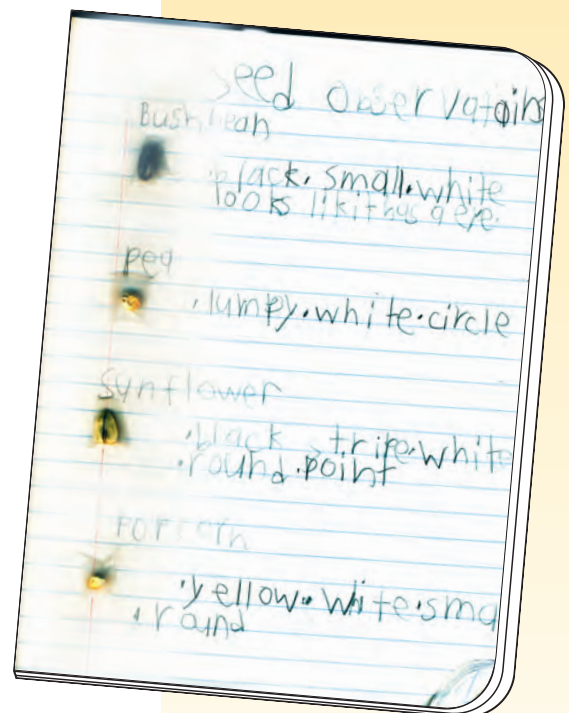 seed observatoins
Bush bean
• black. small. white
looks like it has a eye.
pea
• lumpy. white. circle
sunflower
• black stripe. white
• round. point
• yellow. white. sma
• round